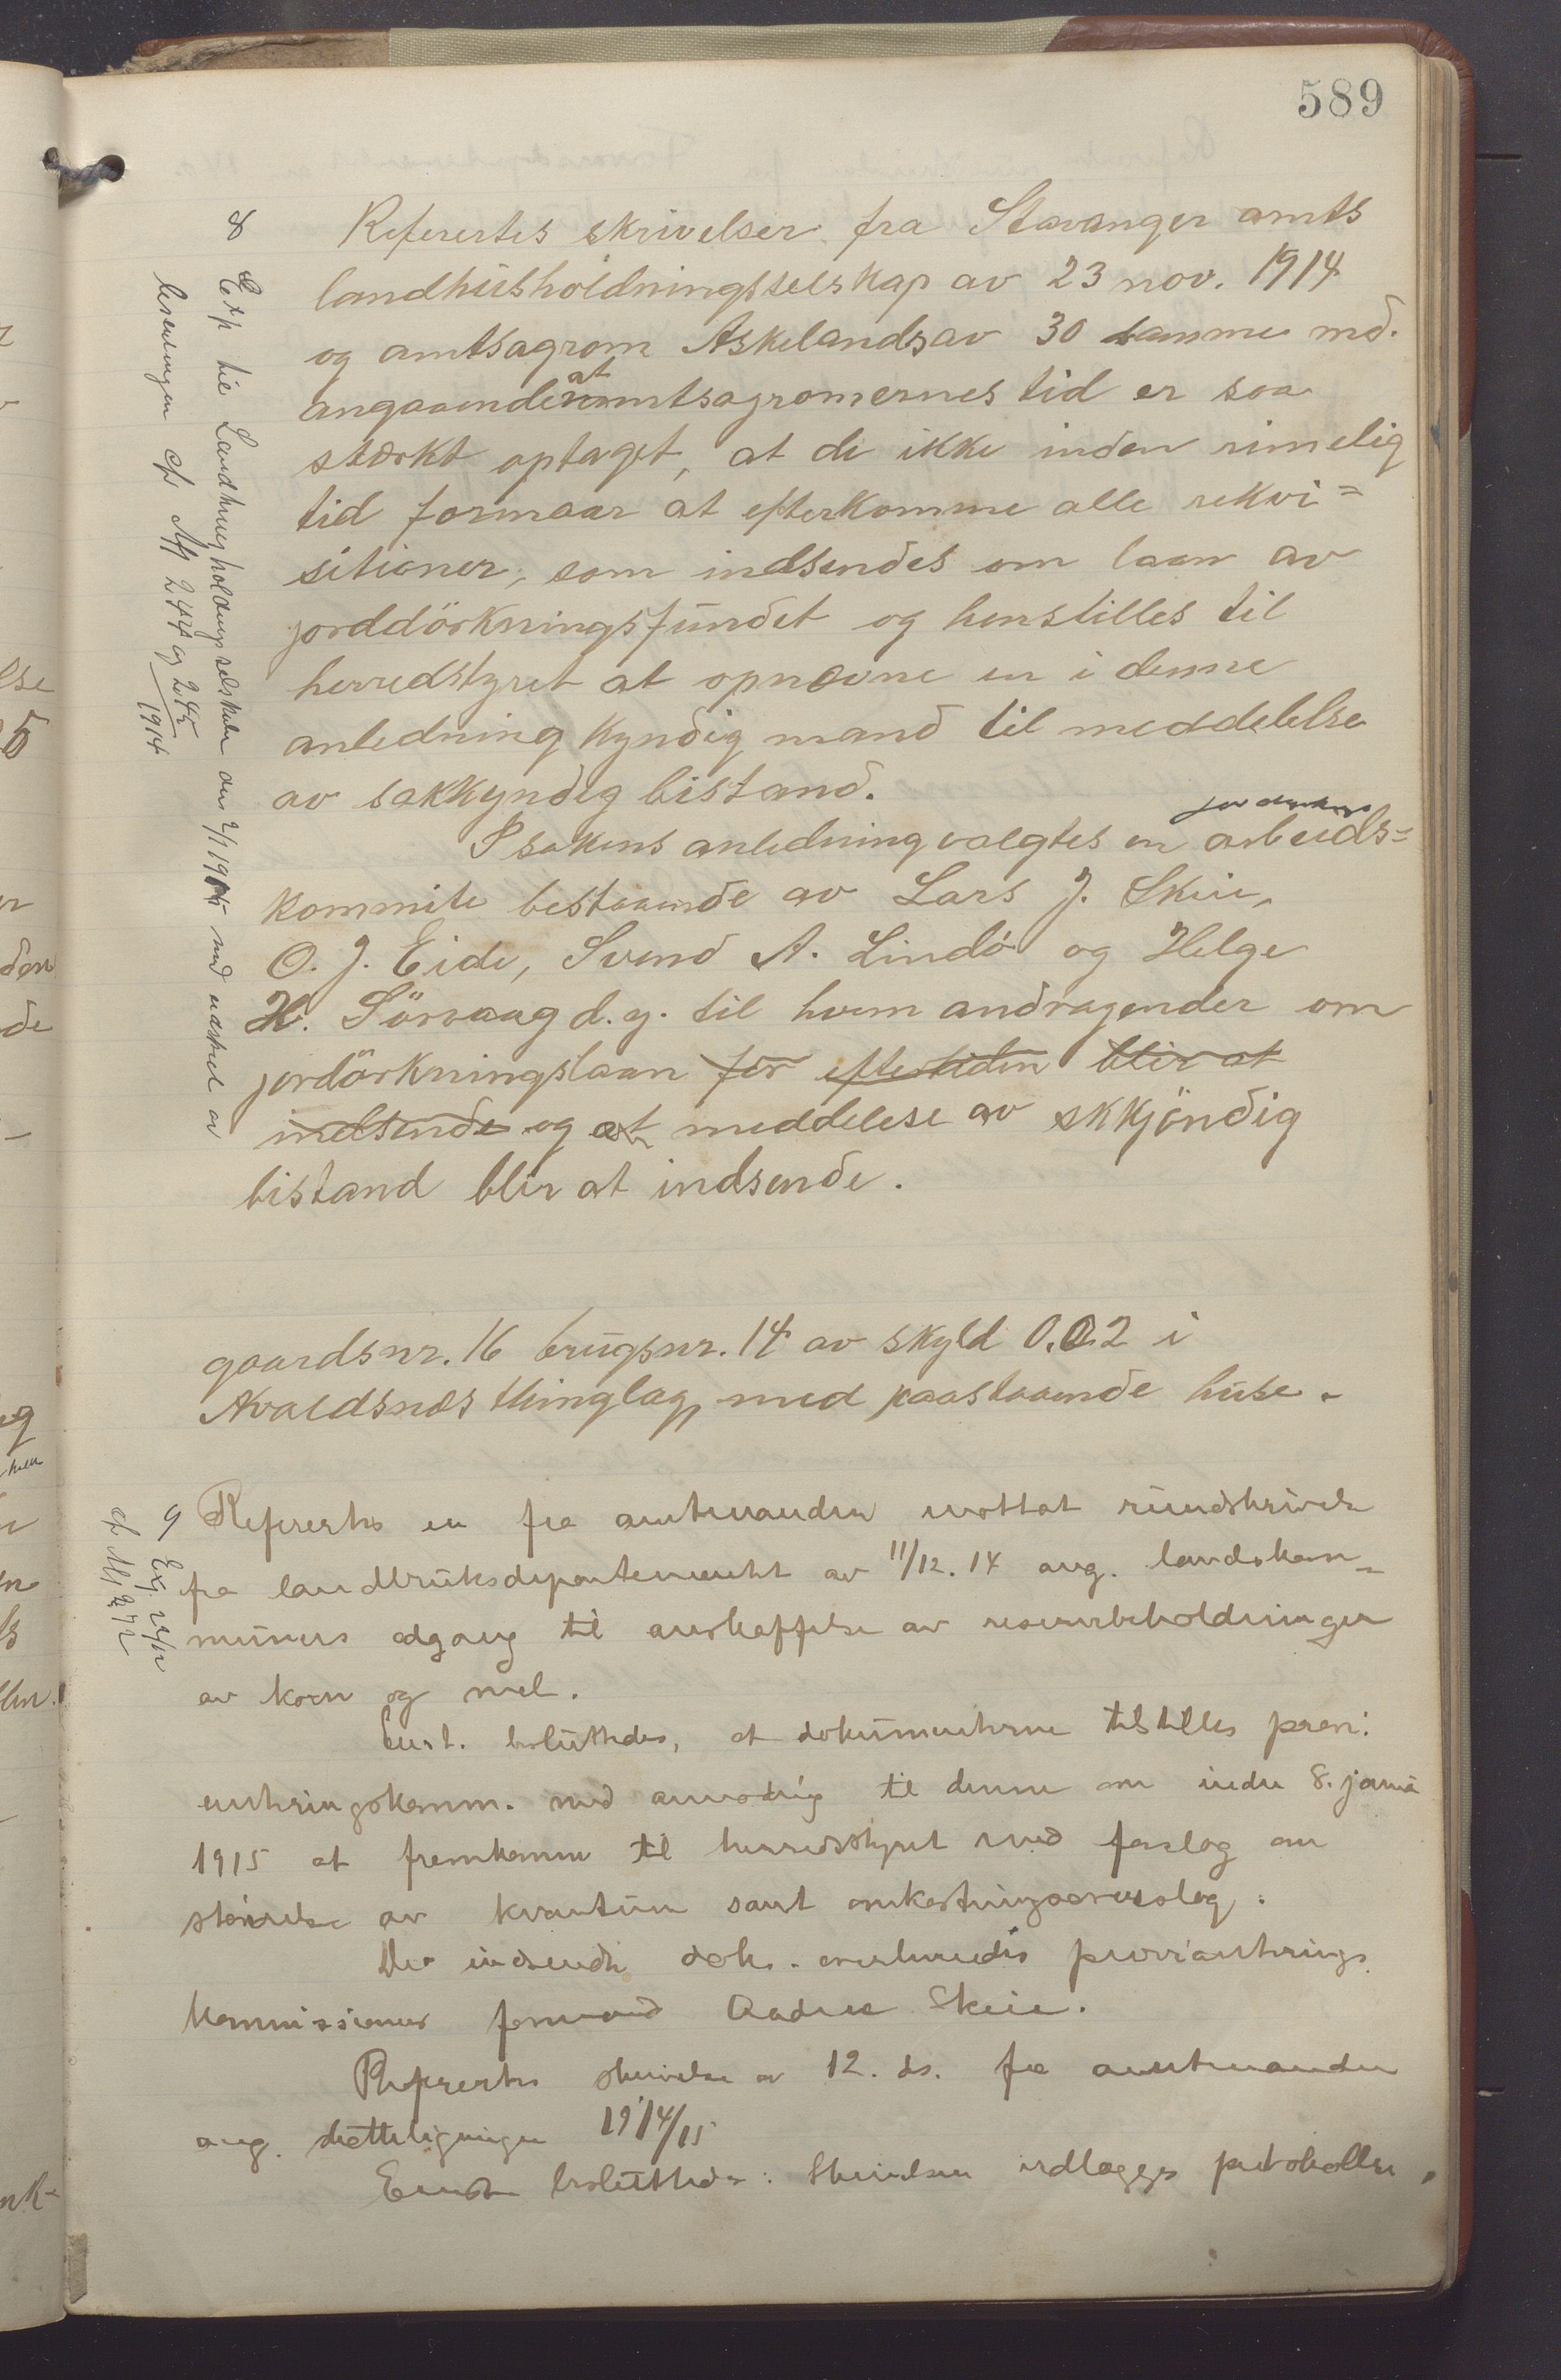 589
8
Exp til Landhusholdningsselskabet den 2/1 1915 med utskrift av
beslutningen cfr Afs 244 og 245
1914
Referertes skrivelser fra Stavanger amts
landhusholdningsselskap av 23 nov. 1914
og amtsagrom Askelands av 30 samme md.
angaaende at amtsagromernes tid er saa
stærkt optaget, at de ikke inden rimelig
tid formaar at efterkomme alle rekvi=
sitioner, som indsendes om laan av
jorddörkningsfundet og henstilles til
herredstyret at opnævne en i denne
anledning kyndig mand til meddelelse
av sakkyndig bistand.
I sakens anledning valgtes en jorddyrknings arbeids=
kommite bestaaende av Lars J. Skeie,
O. J. Eide, Svend A. Lindö og Helge
H. Sörvaag d.y. til hvem andragender om
jordörkningslaan for eftertiden blir at
indsende og at meddelese av skkjöndig
bistand blir at indsende.
gaardsnr. 16 brugsnr. 14 av skyld 0.02 i
Avaldsnæs thinglag, med paastaaende huse.
9
Exp. 22/12
cfr Afs 272
Referertes en fra amtmanden mottat rundskrivelse
fra landbruksdepartementet av 11/12. 14 ang. landskom=
muners adgang til anskaffelse av reservebeholdninger
av korn og mel.
Enst. besluttedes, at dokumenterne tilstilles provi:
anteringskomm. med anmodning til denne om inden 8. janua
1915 at fremkomme til herredsstyret med forslag om
störrelse av kvantum samt omkostningsoverslag.
De indsendte dok. overleveredes provianterings
kommissionens formand Aadne Skeie.
Referertes skrivelse av 12. ds. fra amtmanden
ang. skatteligningen 1914/15
Enst. besluttedes: Skrivelsen indlægges protokollen,